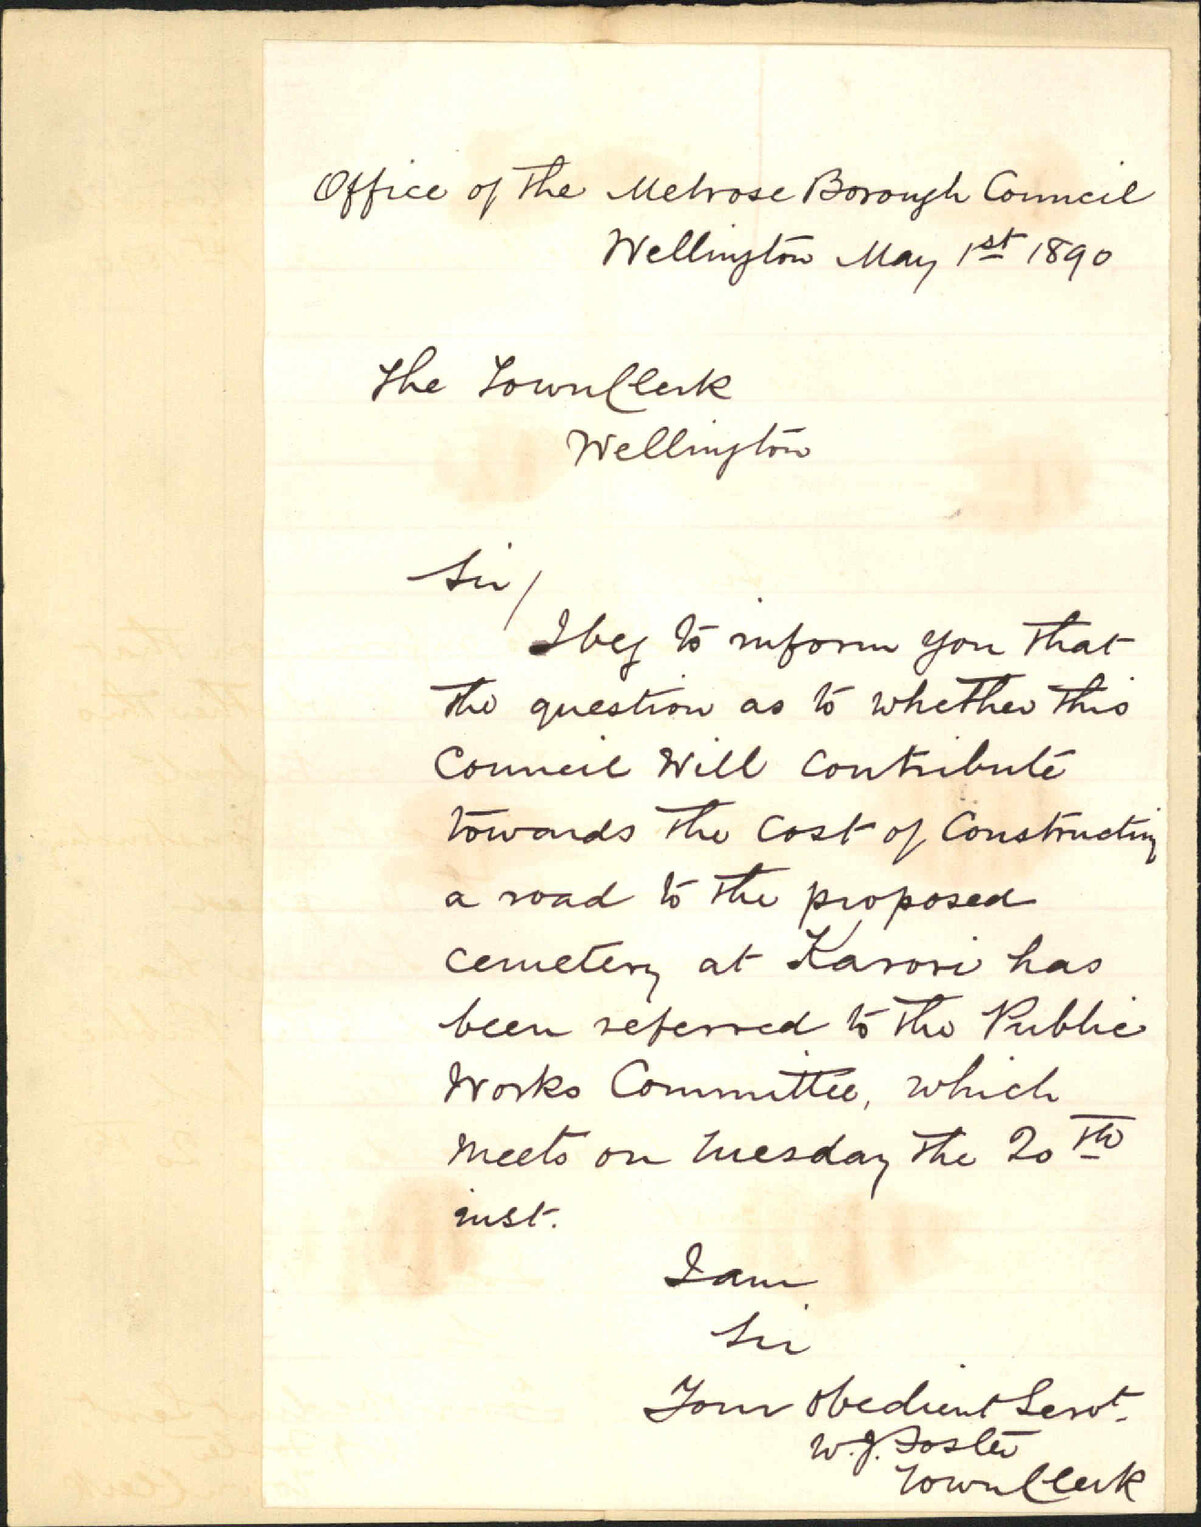 Office of the Melrose Borough Council
Wellington May 1st 1890
The Town Clerk
Wellington
Sir/
I beg to inform you that
the question as to whether this
Council Will contribute
towards the cost of Constructing
a road to the proposed
cemetery at Karori has
been referred to the Public
Works Committee, which
meets on Tuesday the 20th
inst.
I am
Sir
Your obedient Servt.
W. J. Foster
Town Clerk